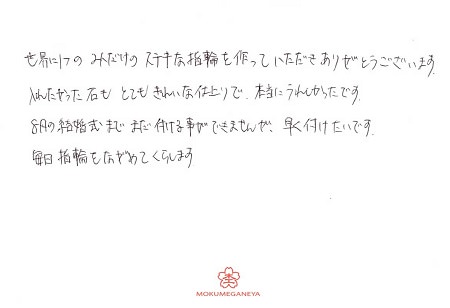 世界に1つの みだけの ステキな指輪を作っていただきありがとうございます。
入れたかった石も とても きれいな仕上りで、本当にうれしかったです。
8月の結婚式まで まだ 付ける事ができませんが、早く付けたいです。
毎日 指輪をながめてくらします
MOKUMEGANEYA